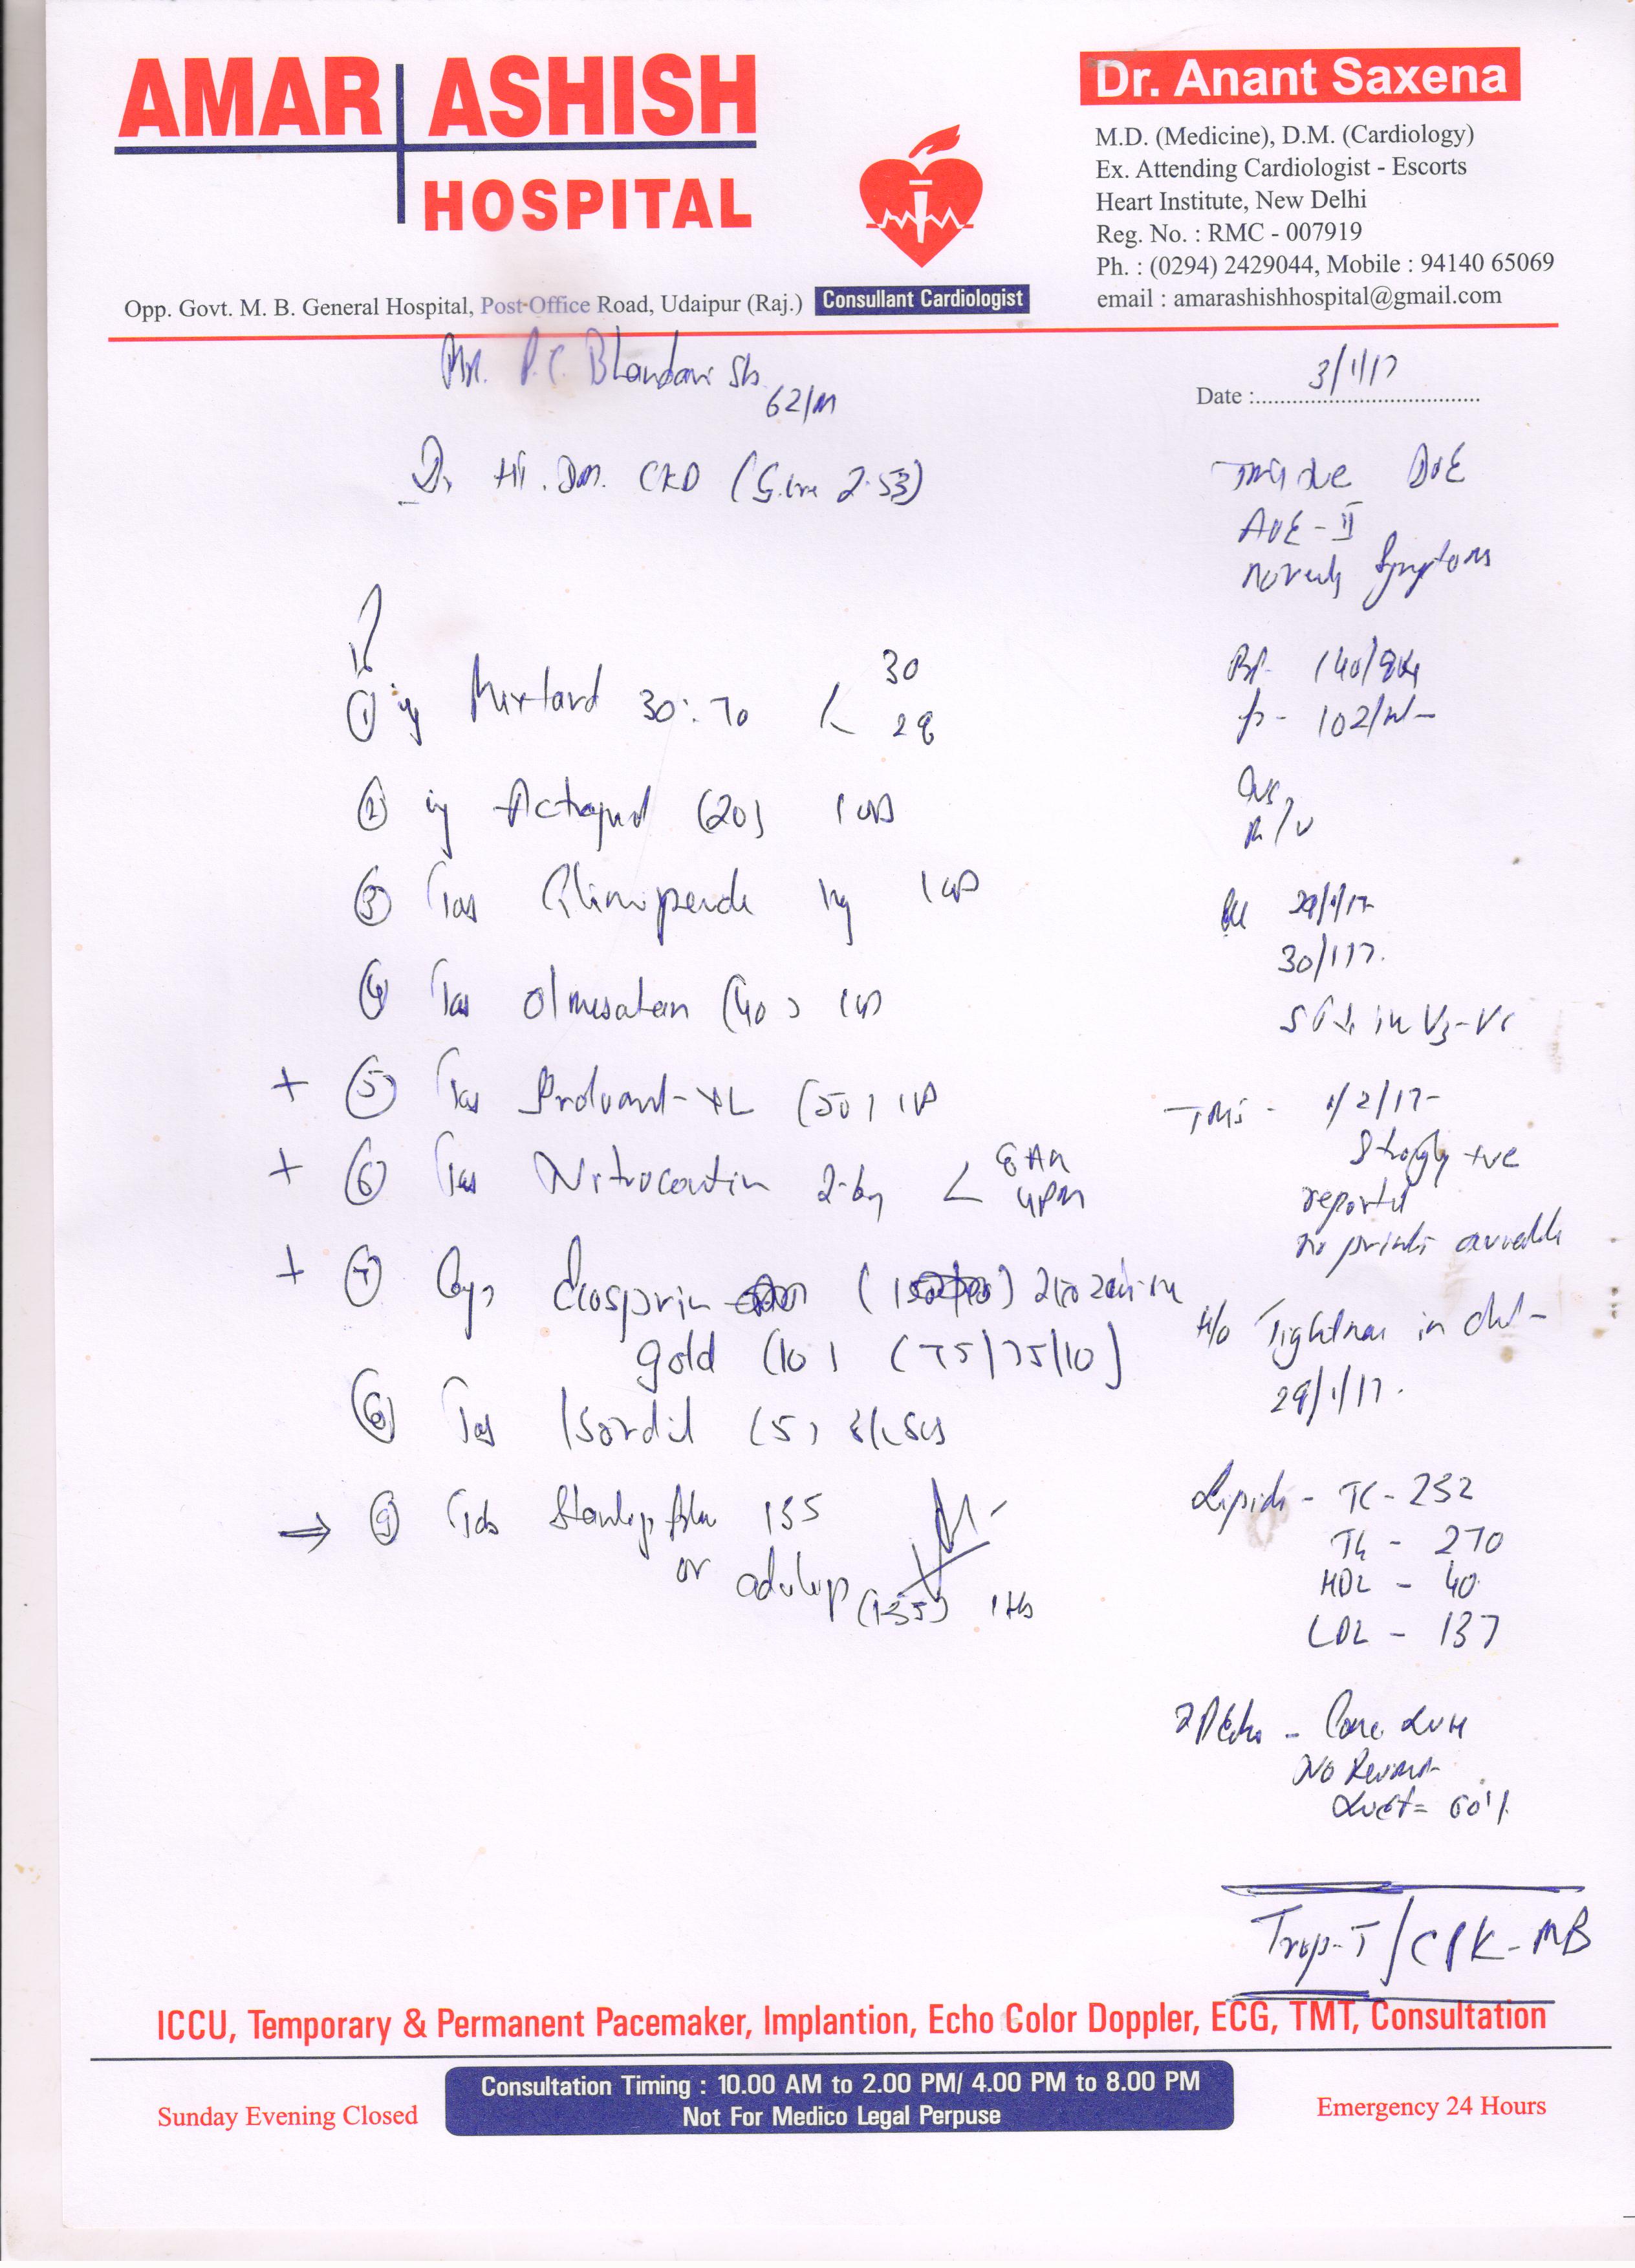 AMAR ASHISH
HOSPITAL
Opp. Govt. M. B. General Hospital, Post-Office Road, Udaipur (Raj.)
Consullant Cardiologist
Dr. Anant Saxena
M.D. (Medicine), D.M. (Cardiology)
Ex. Attending Cardiologist - Escorts
Heart Institute, New Delhi
Reg. No. : RMC - 007919
Ph. : (0294) 2429044, Mobile : 94140 65069
email : amarashishhospital@gmail.com
Mr. P.C. Bhandari Sb.
62/M
Date : 3/1/17
HT. DM. CKD ( 2.53)
① inj Mixtard 30:70 < 30
28
② inj Actrapid (20) 1
③ Tab 1mg
④ Tab (40)
+ ⑤ Tab Prolvant-XL (50)
+ ⑥ Tab Nitrocontin 2.6mg < 8AM
4PM
+ ⑦ Cap Ecosprin
gold (10) (75/75/10)
⑧ Tab Isordil (5) S/L SOS
⇒ ⑨ Tab 135
or adulip (135) 1
DOE
AOE-II
Symptoms
BP- 140/
p- 102/
29/1/17
30/1/17.
in V3-V6
TMT - 1/2/17
Strongly +ve
reported
no prints available
H/o Tightness in
29/1/17.
Lipids - TC - 232
TG - 270
HDL - 40
LDL - 137
2D Echo - Conc LVH
No
LVEF = 60%
Trop-T/CPK-MB
ICCU, Temporary & Permanent Pacemaker, Implantion, Echo Color Doppler, ECG, TMT, Consultation
Sunday Evening Closed
Consultation Timing : 10.00 AM to 2.00 PM/ 4.00 PM to 8.00 PM
Not For Medico Legal Perpuse
Emergency 24 Hours